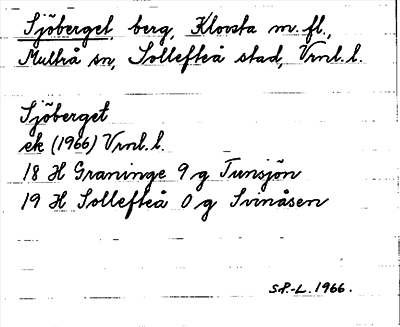 Sjöberget berg, Klovsta m. fl.,
Multrå sn, Sollefteå stad, Vrnl. l.
Sjöberget
ek (1966) Vrnl. l.
18 H Graninge 9 g Tunsjön
19 H Sollefteå 0 g Svinåsen
S.P.-L. 1966.